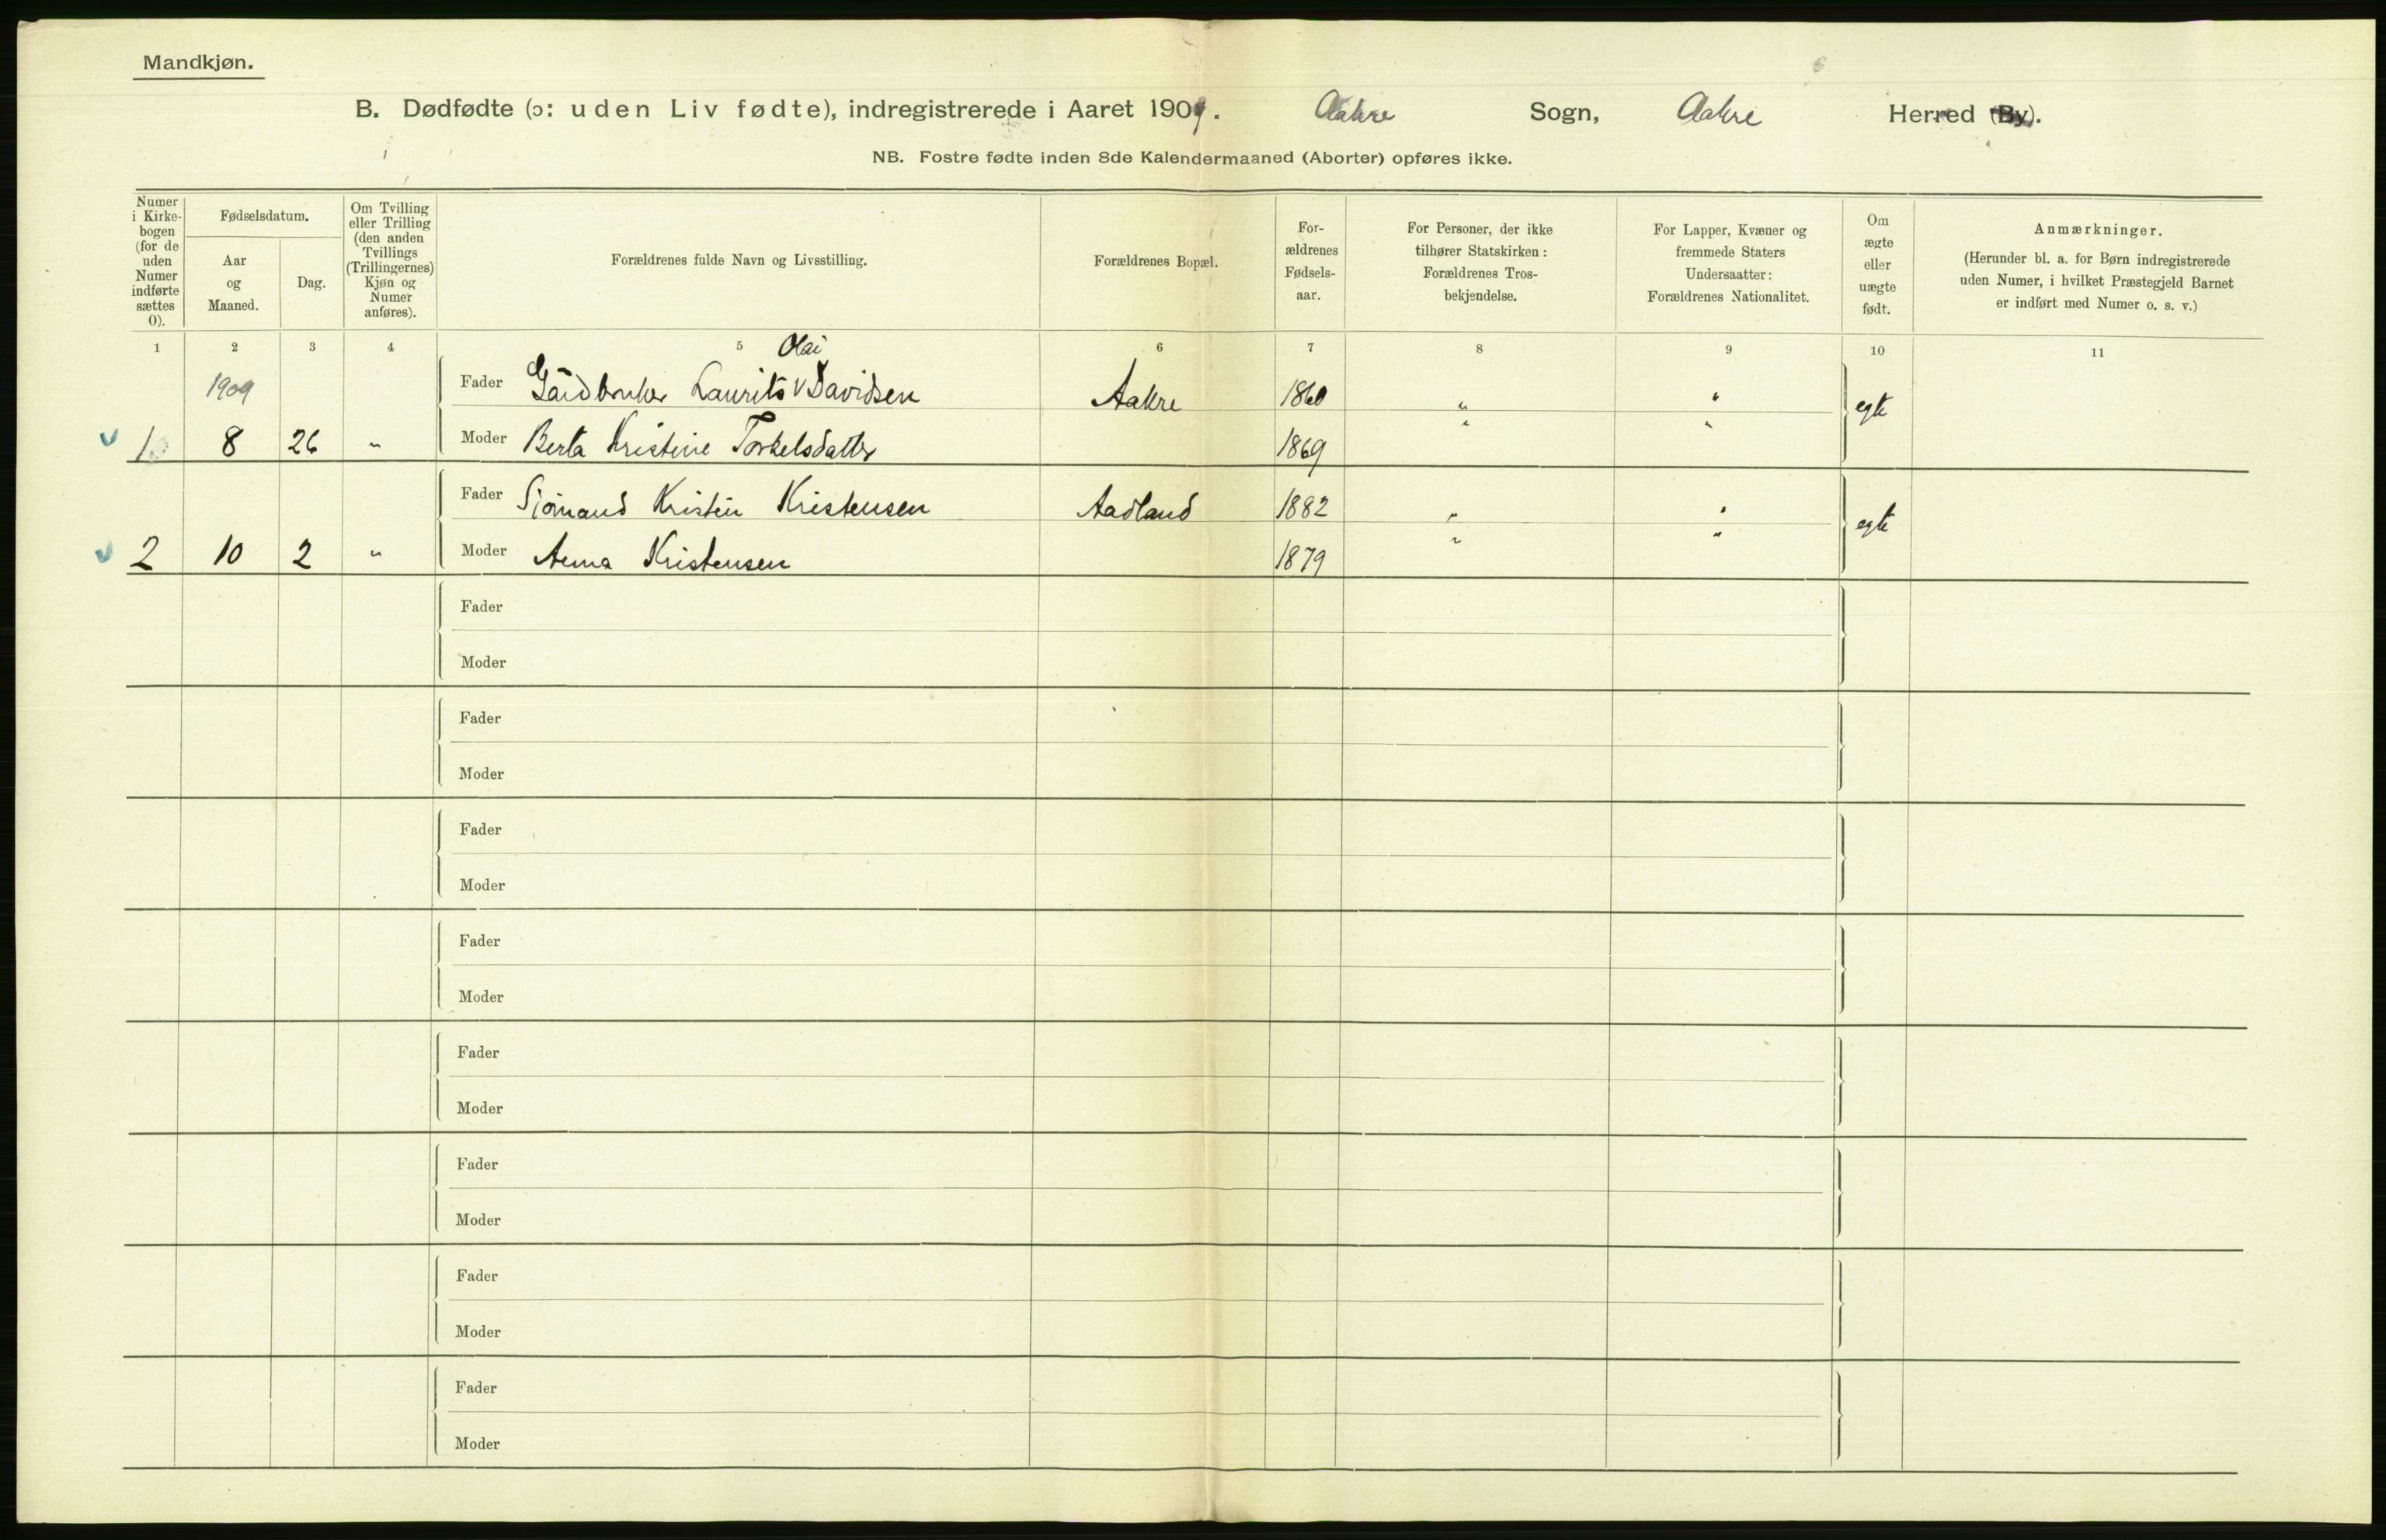 Mandkjøn.
B. Dødfødte (ɔ: uden Liv fødte), indregistrerede i Aaret 1909. Aakre Sogn, Aakre Herred (By).
NB. Fostre fødte inden 8de Kalendermaaned (Aborter) opføres ikke.
Numer
i Kirke-
bogen
(for de
uden
Numer
indførte
sættes
0).
Fødselsdatum.
Aar
og
Maaned.
Dag.
Om Tvilling
eller Trilling
(den anden
Tvillings
(Trillingernes)
Kjøn og
Numer
anføres).
Forældrenes fulde Navn og Livsstilling.
Forældrenes Bopæl.
For-
ældrenes
Fødsels-
aar.
For Personer, der ikke
tilhører Statskirken:
Forældrenes Tros-
bekjendelse.
For Lapper, Kvæner og
fremmede Staters
Undersaatter:
Forældrenes Nationalitet.
Om
ægte
eller
uægte
født.
Anmærkninger.
(Herunder bl. a. for Børn indregistrerede
uden Numer, i hvilket Præstegjeld Barnet
er indført med Numer o. s. v.)
1 2 3 4 5 6 7 8 9 10 11
Olai
1909 Fader Gårdbruker Laurits V Davidsen Aakre 1860 " " egte
1 8 26 " Moder Berta Kristine Torkelsdatter 1869 " "
Fader Sjömand Kristen Kristensen Aadland 1882 " " egte
2 10 2 " Moder Anna Kristensen 1879 " "
Fader
Moder
Fader
Moder
Fader
Moder
Fader
Moder
Fader
Moder
Fader
Moder
Fader
Moder
Fader
Moder